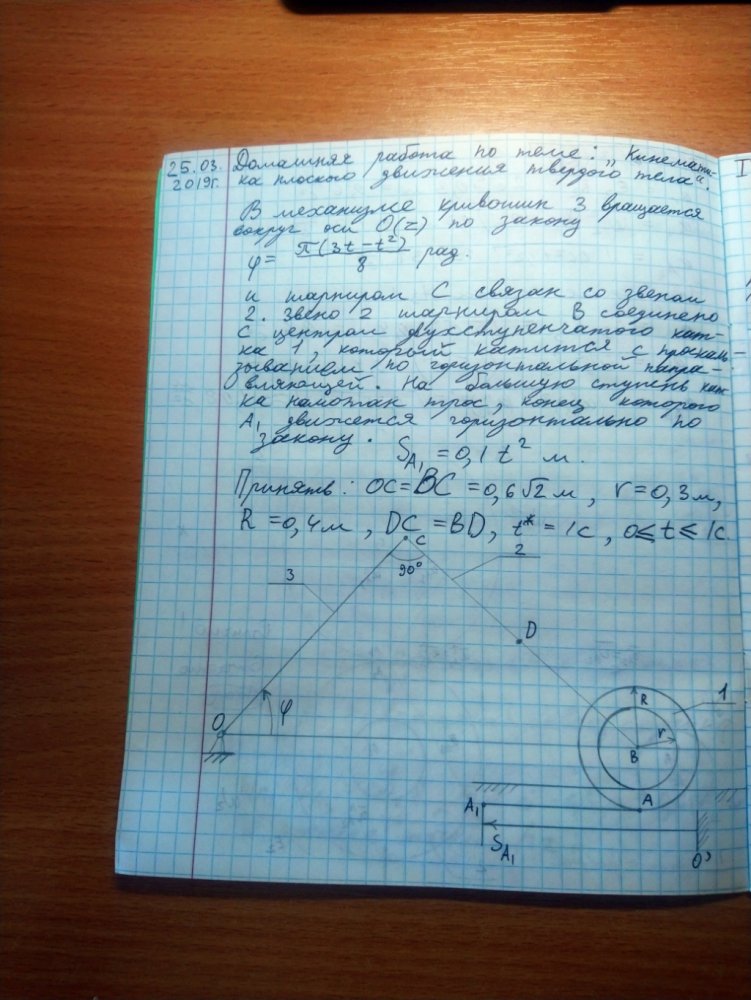 25.03.
2019г.
Домашняя работа по теме: „Кинемати-
ка плоского движения твердого тела".
В механизме кривошип 3 вращается
вокруг оси O(z) по закону
φ = π(3t-t²)/8 рад.
и шарниром C связан со звеном
2. Звено 2 шарниром B соединено
с центром двухступенчатого кат-
ка 1, который катится с проскаль-
зыванием по горизонтальной напра-
вляющей. На большую ступень кат-
ка намотан трос, конец которого
A₁ движется горизонтально по
закону.
S_A₁ = 0,1 t² м.
Принять: OC=BC=0,6√2 м, r=0,3м,
R=0,4м, DC=BD, t*=1c, 0≤t≤1c.
C
90°
2
3
D
φ
O
R
1
r
B
A₁
A
S_A₁
O'